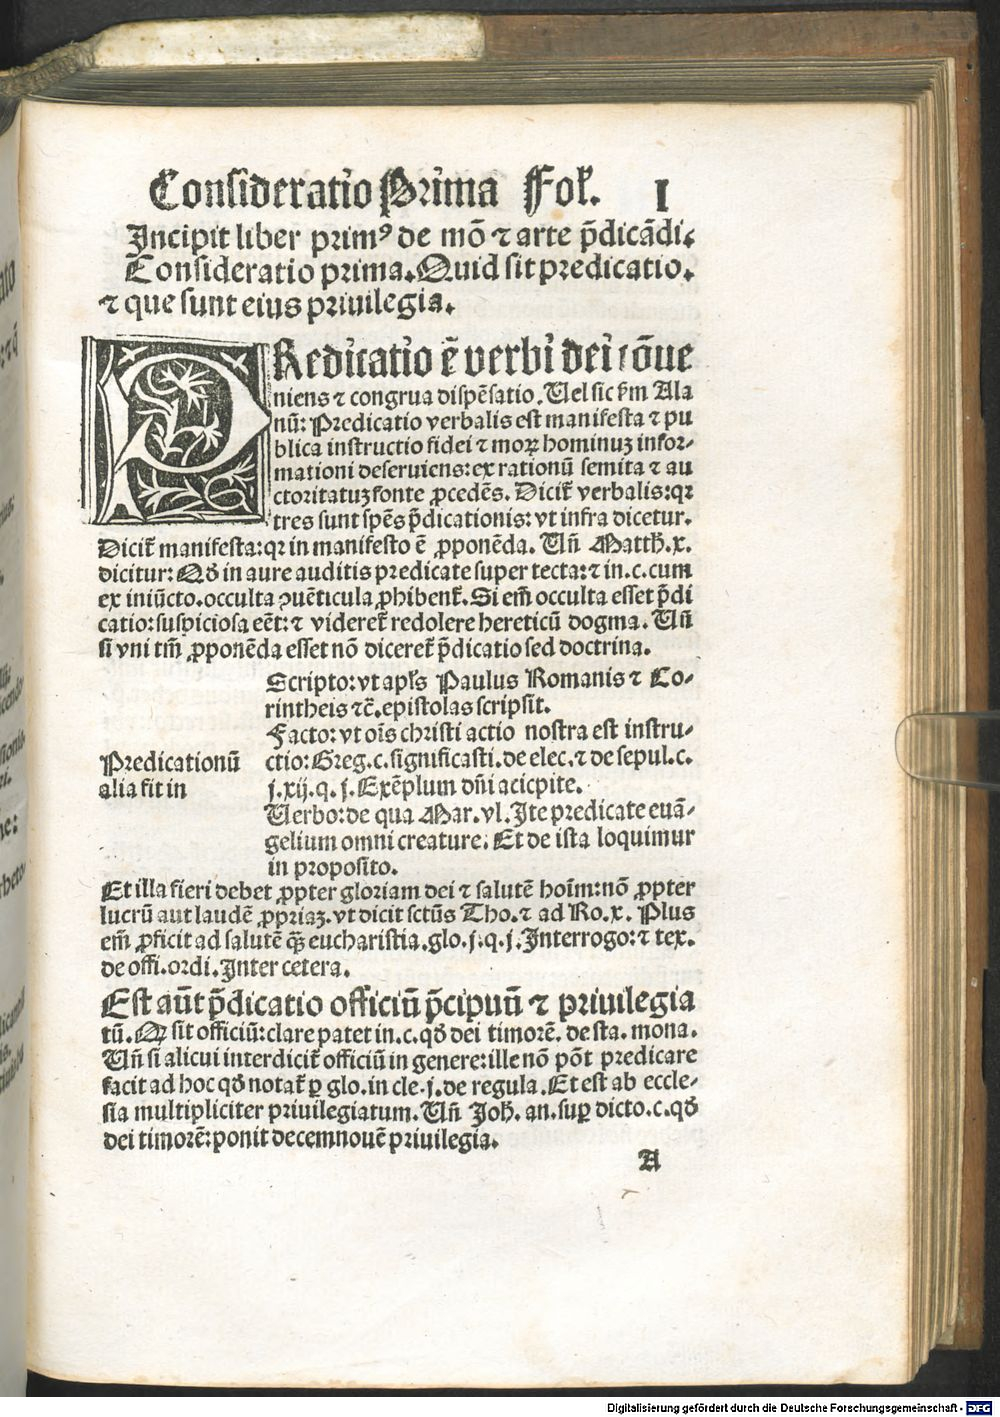 Consideratio Prima Fol. I
Incipit liber primꝰ de mō ⁊ arte p̄dicādi.
Consideratio prima. Quid sit predicatio.
⁊ que sunt eius priuilegia.
PRedicatio ē verbi dei cōue
niens ⁊ congrua dispēsatio. Uel sic ẜm Ala
nū: Predicatio verbalis est manifesta ⁊ pu
blica instructio fidei ⁊ moꝝ hominuꝫ infor-
mationi deseruiens: ex rationū semita ⁊ au
ctoritatuꝫ fonte ꝓcedēs. Dicit᷑ verbalis: qꝛ
tres sunt spēs p̄dicationis: vt infra dicetur.
Dicit᷑ manifesta: qꝛ in manifesto ē ꝓponēda. Uñ Matth. x.
dicitur: Qđ in aure auditis predicate super tecta: ⁊ in. c. cum
ex iniūcto. occulta ꝯuēticula ꝓhibent᷑. Si em̄ occulta esset p̄di
catio: suspiciosa eēt: ⁊ videret᷑ redolere hereticū dogma. Uñ
si vni tm̄ ꝓponēda esset nō diceret᷑ p̄dicatio sed doctrina.
Scripto: vt apl̄s Paulus Romanis ⁊ Co-
rintheis ⁊c̄. epistolas scripsit.
Facto: vt oīs christi actio nostra est instru-
Predicationū ctio: Greg. c. significasti. de elec. ⁊ de sepul. c.
alia fit in j. xij. q. j. Exēplum dn̄i acicpite.
Uerbo: de qua Mar. vl. Ite predicate euā-
gelium omni creature. Et de ista loquimur
in proposito.
Et illa fieri debet ꝓpter gloriam dei ⁊ salutē hoīm: nō ꝓpter
lucrū aut laudē ꝓpriaꝫ. vt dicit sctūs Tho. ⁊ ad Ro. x. Plus
em̄ ꝓficit ad salutē qꝫ̄ eucharistia. glo. j. q. j. Interrogo: ⁊ tex.
de offi. ordi. Inter cetera.
Est aūt p̄dicatio officiū p̄cipuū ⁊ priuilegia
tū. Ꝙ sit officiū: clare patet in. c. qđ dei timorē. de sta. mona.
Uñ si alicui interdicit᷑ officiū in genere: ille nō pōt predicare
facit ad hoc qđ notat᷑ ꝑ glo. in cle. j. de regula. Et est ab eccle-
sia multipliciter priuilegiatum. Uñ Joh. an. suꝑ dicto. c. qđ
dei timorē: ponit decemnouē priuilegia.
A
Digitalisierung gefördert durch die Deutsche Forschungsgemeinschaft - DFG